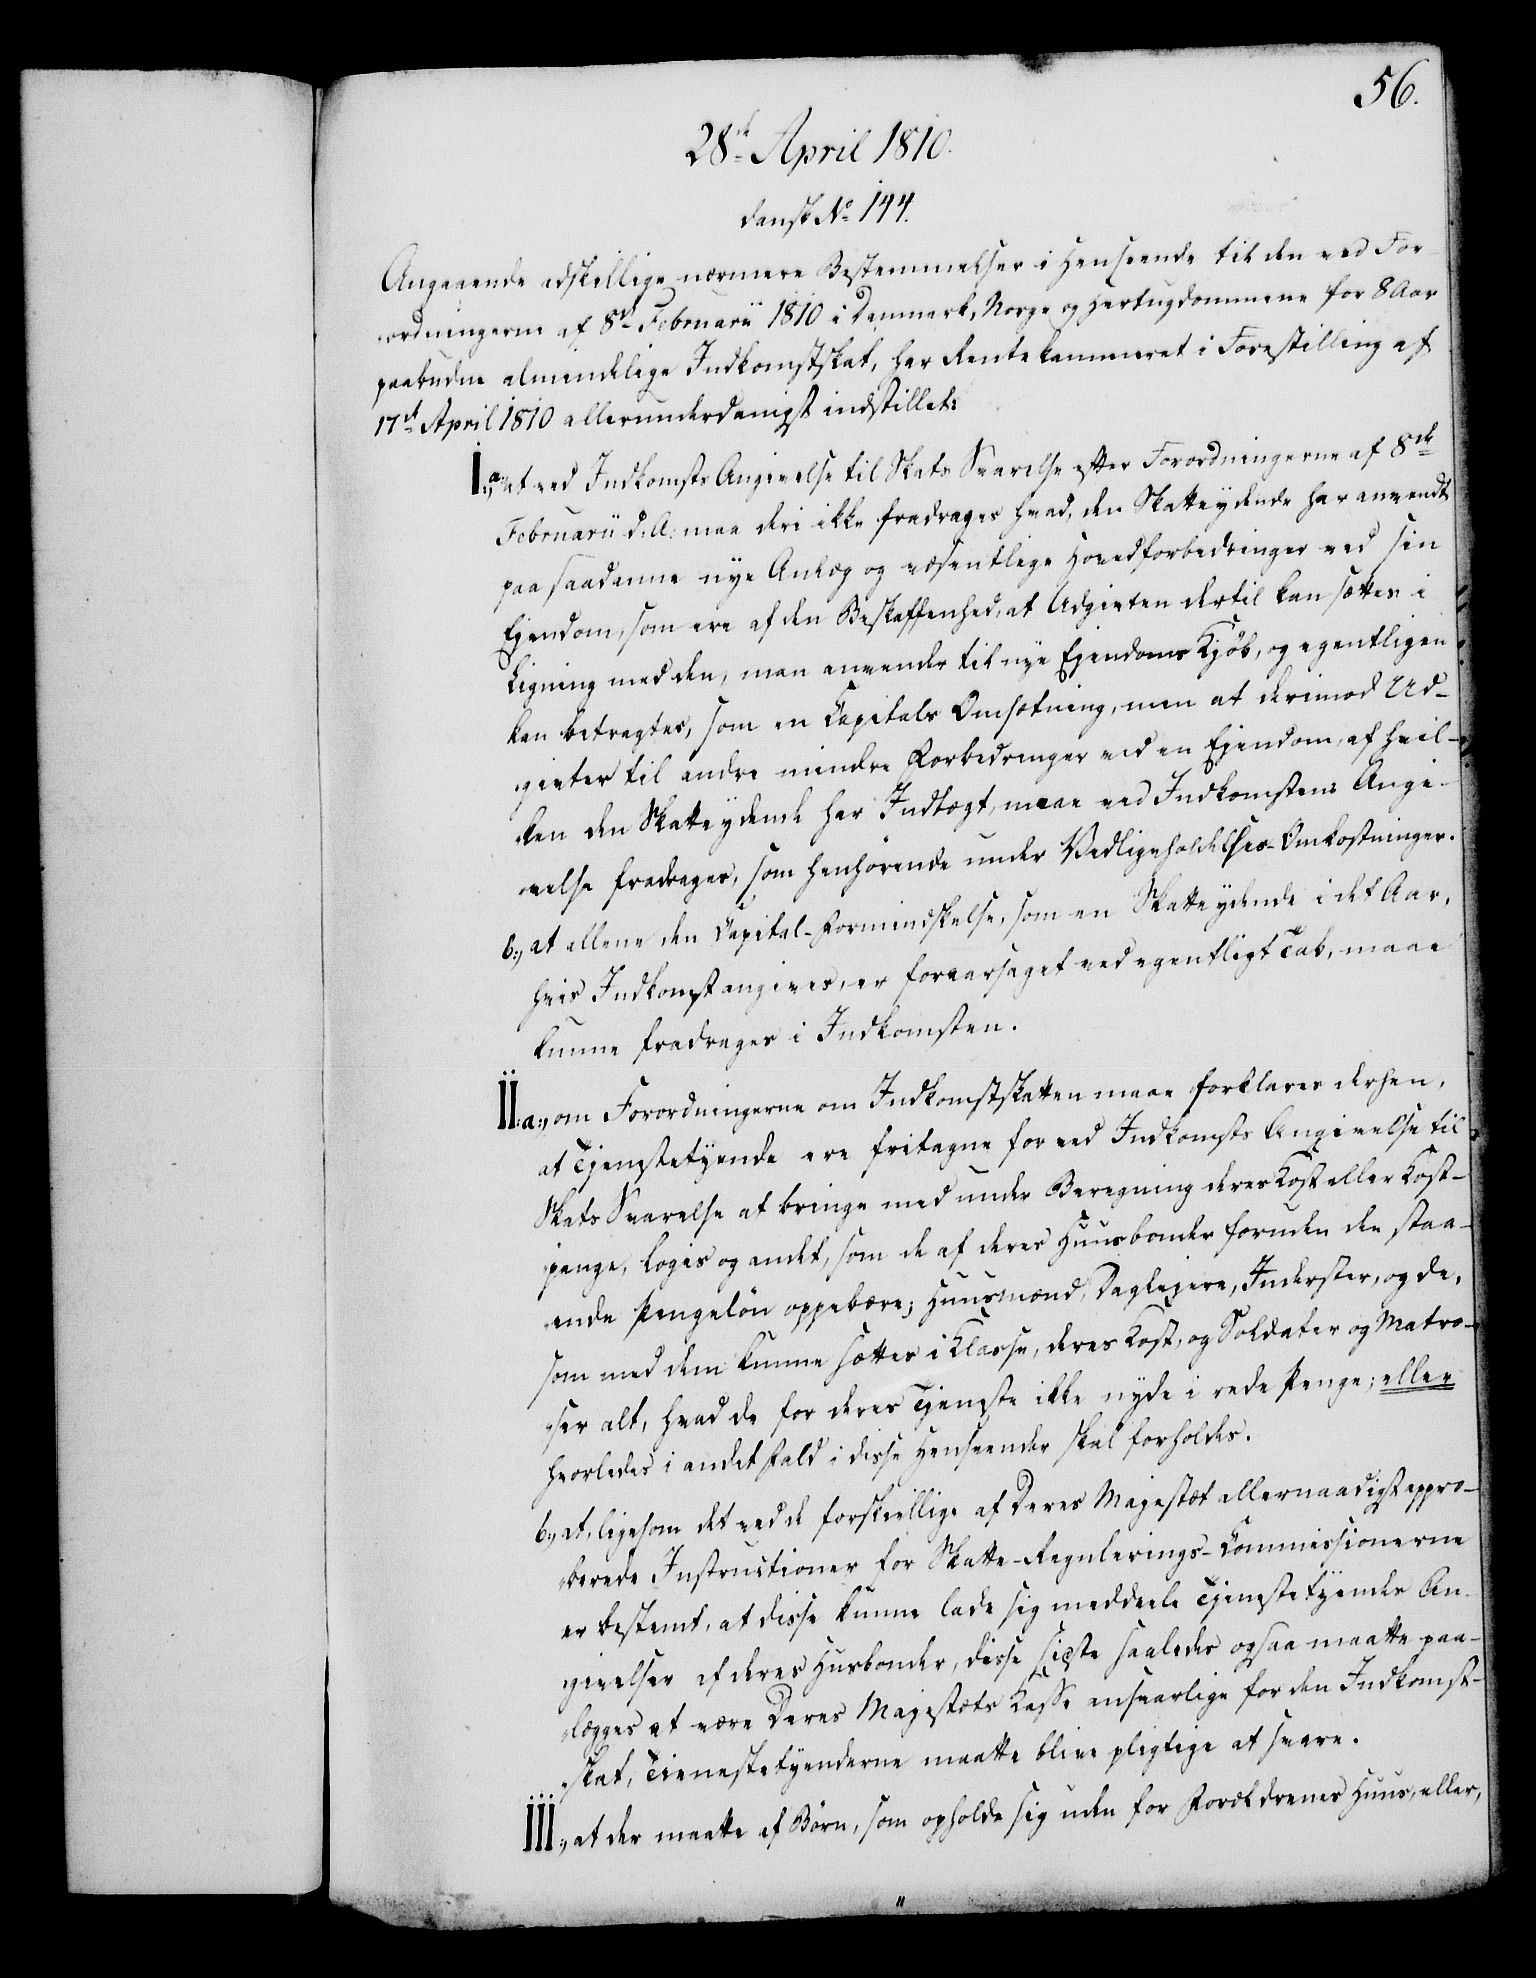 56.
28de April 1810.
dansk No 144.
Angaaende adskillige nærmere Bestemmelser i Henseende til den ved For-
ordningerne af 8de Februarii 1810 i Danmark, Norge og Hertugdommene for 8 Aar
paabudne almindelige Indkomstskat, har Rentekammeret i Forestilling af
17de April 1810 allerunderdanigst indstillet:
I. a., at ved Indkomsts Angivelse til Skats Svarelse efter Forordningerne af 8de
Februarii d. A. maa deri ikke fradrages hvad, den Skatteydende har anvendt
paa saadanne nye Anlæg og væsentlige Hovedforbedringer ved sin
Ejendom, som ere af den Beskaffenhed, at Udgivten dertil kan sættes i
Ligning med den, man anvender til nye Ejendoms Kjöb, og egentligen
kan betragtes, som en Capitals Omsætning, men at derimod Ud-
givter til andre mindre Forbedringer ved en Ejendom, af hvil-
ken den Skatteydende har Indtægt, maae ved Indkomstens Angi-
velse fradrages, som henhörende under Vedligeholdelses-Omkostninger.
b., at allene den Capital-Formindskelse, som en Skatteydende i det Aar,
hvis Indkomst angives, er foraarsaget ved egentligt Tab, maae
kunne fradrages i Indkomsten.
II. a., om Forordningerne om Indkomstskatten maae forklares derhen,
at Tjenstetyende ere fritagne for ved Indkomsts Angivelse til
Skats Svarelse at bringe med under Beregning deres Kost eller Kost-
penge, Logis og andet, som de af deres Huusbonder foruden den staa-
ende Pengelön oppebære; Huusmænd, Daglejere, Inderster, og de,
som med dem kunne sættes i Classe, deres Kost, og Soldater og Matro-
ser alt, hvad de for deres Tjeneste ikke nyde i rede Penge; eller
hvorledes i andet Fald i disse Henseender skal forholdes.
b., at, ligesom det ved de forskiellige af Deres Majestæt allernaadigst appro-
berede Instructioner for Skatte-Regulerings-Commissionerne
er bestemt, at disse kunne lade sig meddeele Tjenstetyendes An-
givelser af deres Husbonder, disse sidste saaledes ogsaa maatte paa-
lægges at være Deres Majestæts Kasse ansvarlige for den Indkomst-
skat, Tienestetyenderne maatte blive pligtige at svare.
III., at der maatte af Börn, som opholde sig uden for Forældrenes Huus, eller,